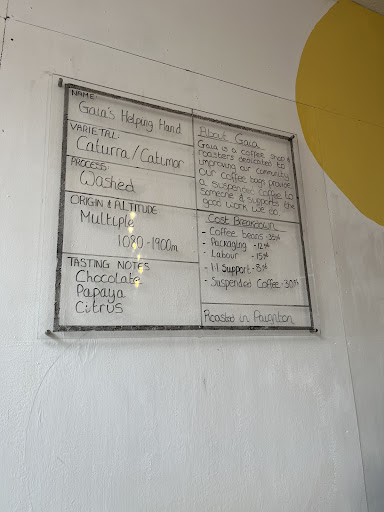 NAME:
Gaia's Helping Hand
VARIETAL:
Caturra / Catimor
PROCESS:
Washed
ORIGIN & ALTITUDE
Multiple
1080 - 1900m
TASTING NOTES
Chocolate
Papaya
Citrus
About Gaia
Gaia is a coffee shop &
roasters dedicated to
improving our community
our coffee bags provide
a suspended coffee to
someone & supports the
good work we do.
Cost Breakdown
- Coffee beans - 35%
- Packaging - 12%
- Labour - 15%
- Support - 8%
- Suspended Coffee - 30%
Roasted in Paignton